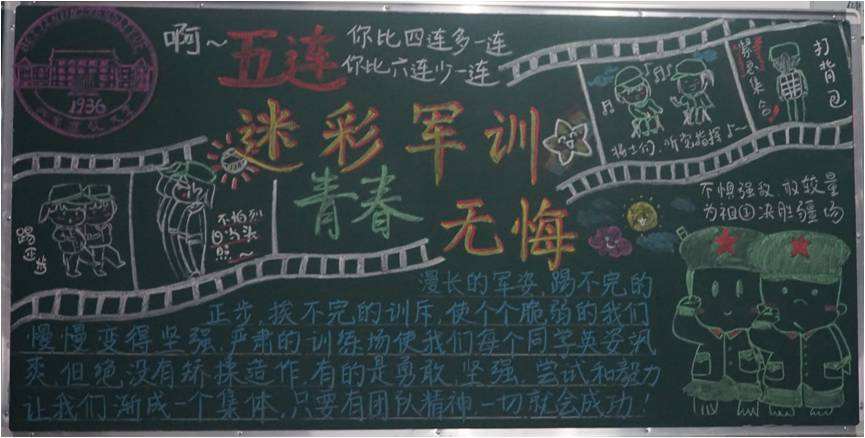 1936
啊～五连
你比四连多一连
你比六连少一连
迷彩军训
青春
无悔
紧急集合
打背包
将士们，听党指挥
踢正步
不怕烈
日当头
照～
不惧强敌 敢较量
为祖国决胜疆场
漫长的军姿，踢不完的
正步，挨不完的训斥，使个个脆弱的我们
慢慢变得坚强，严肃的训练场使我们每个同学英姿飒
爽，但绝没有矫揉造作，有的是勇敢，坚强，尝试和毅力
让我们渐成一个集体，只要有团队精神一切就会成功！